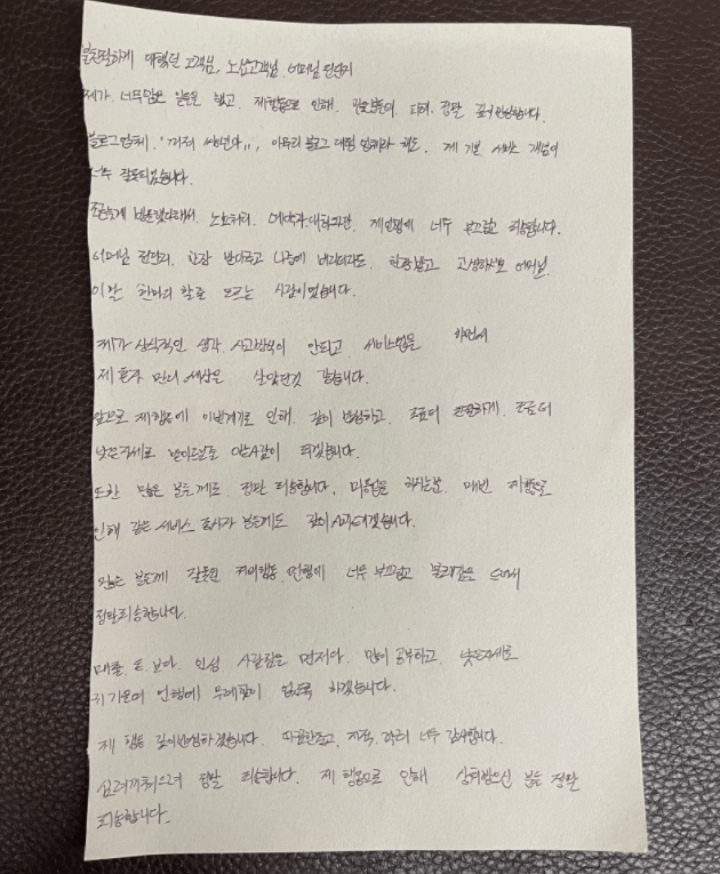 불친절하게 대했던 고객님, 노쇼고객님, 어머님 전단지
제가 너무많은 일들을 했고. 제행동으로 인해. 많은분들이. 피해. 정말 깊이반성합니다.
블로그업체. "꺼져 쌍년아",, 아무리 블로그 대행 업체라 해도. 제 기본 서비스 개념이
너무 잘못되었습니다.
늦게 방문했다해서. 노쇼처리. 제언행에 너무 부끄럽고 죄송합니다.
어머님 전단지. 한장 받아주고 나중에 버리더라도. 한장받고 고생하세요 어머님.
이말 한마디 할줄 모르는 사람이었습니다.
제가 상식적인 생각. 사고방식이 안되고. 서비스업을 하면서
제 혼자 만의 세상을 살았던것 같습니다.
앞으로 제행동에 이번계기로 인해. 깊이 반성하고. 조금더 친절하게. 조금더
낮은자세로 받아드릴줄 아는사람이 되겠습니다.
또한 많은 분들께도. 정말 죄송합니다. 미용업을 하시는분. 매번 저때문으로
인해 같은 서비스 종사자 분들께도 깊이사과드리겠습니다.
많은 분들께 잘못된 저의행동. 언행에 너무 부끄럽고 불쾌감을 드려서
정말죄송합니다.
매출. 돈 보다. 인성 사람됨을 먼저다. 많이 공부하고. 낮은자세로
귀기울여 언행에 무례함이 없도록 하겠습니다.
제 행동 깊이반성하겠습니다. 따끔한충고, 지적, 질타 너무 감사합니다.
심려끼쳐드려 정말 죄송합니다. 제 행동으로 인해 상처받으신 분들 정말
죄송합니다.